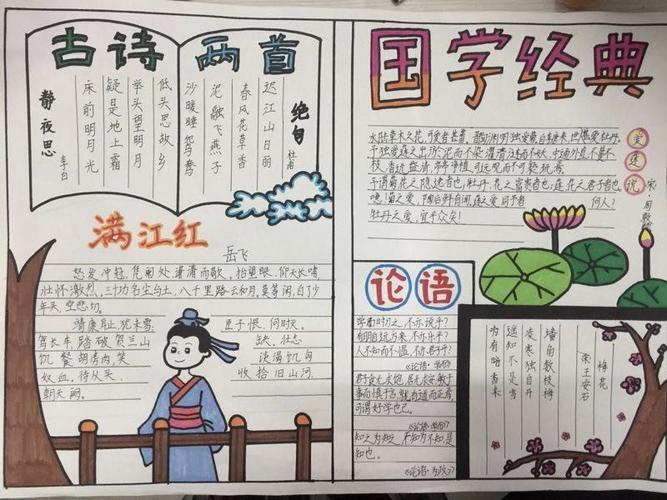 古诗两首
静夜思
李白
床前明月光
疑是地上霜
举头望明月
低头思故乡
绝句
杜甫
迟江山日丽
春风花草香
泥融飞燕子
沙暖睡鸳鸯
满江红
岳飞
怒发冲冠,凭阑处潇潇雨歇,抬望眼,仰天长啸
壮怀激烈,三十功名尘与土,八千里路云和月,莫等闲,白了少
年头,空悲切。
靖康耻,犹未雪,
臣子恨,何时灭。
驾长车,踏破贺兰山
缺,壮志
饥餐胡虏肉,笑
谈渴饮匈
奴血,待从头,
收拾旧山河,
朝天阙。
国学经典
爱莲说
宋·周敦颐
水陆草木之花,可爱者甚蕃,晋陶渊明独爱菊,自李唐来,世人甚爱牡丹。
予独爱莲之出淤泥而不染,濯清涟而不妖,中通外直,不蔓不
枝,香远益清,亭亭净植,可远观而不可亵玩焉。
予谓菊,花之隐逸者也,牡丹,花之富贵者也,莲,花之君子者也。
噫!菊之爱,陶后鲜有闻,莲之爱,同予者何人?
牡丹之爱,宜乎众矣!
论语
学而时习之,不亦说乎?
有朋自远方来,不亦乐乎?
人不知而不愠,不亦君子乎?
《论语·学而》
君子食无求饱,居无求安,敏于
事而慎于言,就有道而正焉,
可谓好学也已。
《论语·学而》
知之为知之,不知为不知,是
知也。
《论语·为政》
梅花
宋王安石
墙角数枝梅
凌寒独自开
遥知不是雪
为有暗香来